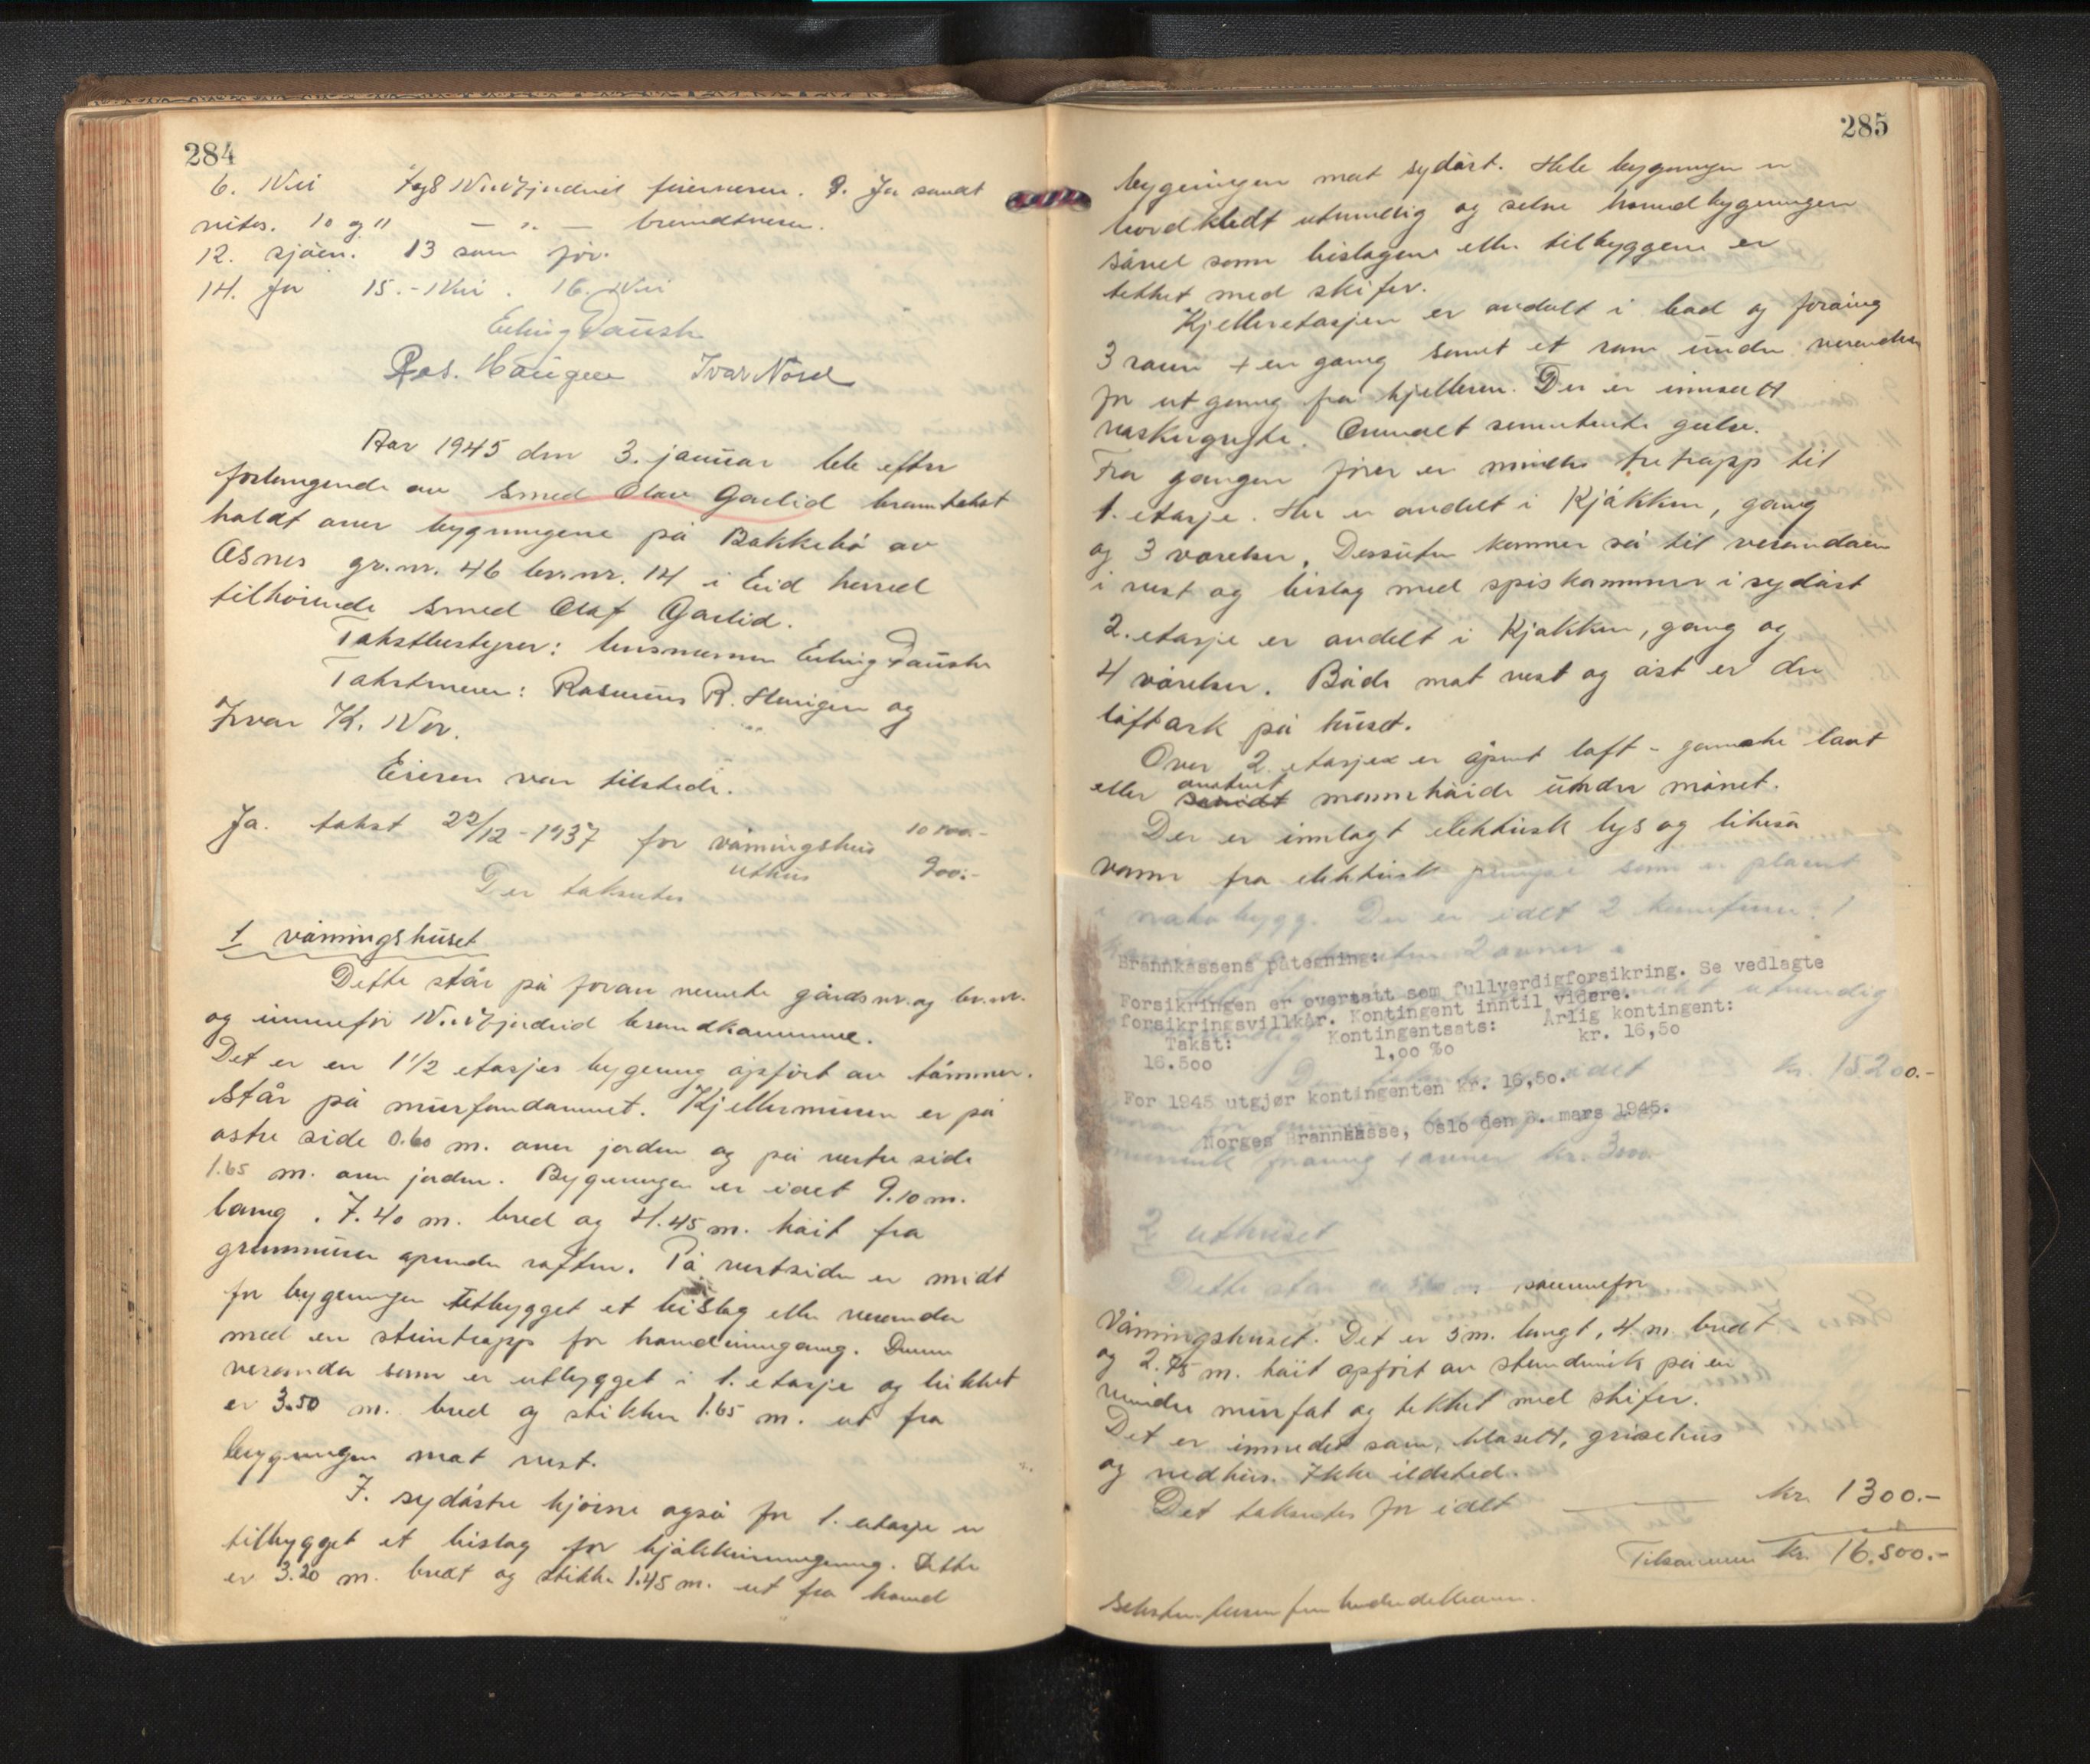 284
6. Nei 7 og 8 Nordfjordeid feiervesen. 9. Ja sandt
vites. 10 og 11 — " — brandtvesen.
12. sjøen. 13 som før.
14. Ja 15. - Nei. 16. Nei
Erling Taush
Ras. Haugen Ivar Nord
Aar 1945 den 3. januar ble efter
forlangende av Smed Olav Garlid branntakst
holdt over bygningene på Bakkebø av
Osnes gr.nr. 46 br.nr. 14 i Eid herred
tilhørende smed Olaf Garlid.
Takstbestyrer: lensmannen Erling Taush
Takstmenn: Rasmus R. Haugen og
Ivar K. Nor.
Eieren var tilstede.
Ja. takst 22/12-1937 for våningshus 10 100.-
uthus 900.-
Der takseres
1 våningshuset
Dette står på foran nevnte gårdsnr. og br.nr.
og innenfor Nordfjordeid brandkommune.
Det er en 1 1/2 etasjes bygning opført av tømmer.
Står på murfundament. Kjellermuren er på
østre side 0.60 m. over jorden og på vestre side
1.65 m. over jorden. Bygningen er idet 9.10 m.
lang, 7.40 m. bred og 4.45 m. høit fra
grunnmuren opunder raften. På vestsiden er midt
for bygningen utbygget et bislag eller veranda
med en steintrapp for hovedinngang. Denne
veranda som er utbygget i 1. etasje og lukket
er 3.50 m. bred og stikker 1.65 m. ut fra
bygningen mot vest.
I sydøstre hjørne også for 1. etasje er
tilbygget et bislag for kjøkkeninngang. Dette
er 3.20 m. bredt og stikker 1.45 m. ut fra hoved
285
bygningen mot sydøst. Hele bygningen er
bordkledt utvendig og selve hovedbygningen
såvel som bislagene eller tilbyggene er
tekket med skifer.
Kjelleretasjen er avdelt i bad og forøvrig
3 rom + en gang samt et rom under verandaen
for utgang fra kjelleren. Der er innsatt
vaskegryte. Overalt sementerte gulv.
Fra gangen fører en mindre tretrapp til
1. etasje. Her er avdelt i Kjøkken, gang
og 3 værelser. Dessuten kommer så til verandaen
i vest og bislag med spiskammer i sydøst
2. etasje er avdelt i Kjøkken, gang og
4 værelser. Både mot vest og øst er der
loftark på huset.
Over 2. etasjer er åpent loft - ganske lavt
eller omtrent mannhøide under mønet.
Der er innlagt elektrisk lys og likeså
vann fra elektrisk pumpe som er plasert
i nabobygg. Der er idet 2
Brannkassens påtegning:
Forsikringen er oversatt som fullverdigforsikring. Se vedlagte
forsikringsvillkår. Kontingent inntil videre.
Takst: Kontingentsats: Årlig kontingent:
16.500 1,00 %o kr. 16,50
kr. 15200.-
For 1945 utgjør kontingenten kr. 16,50.
Norges Brannkasse, Oslo den 8. mars 1945.
2 uthuset
Dette står ca 500 m. sønnenfor
Våningshuset. Det er 5 m. langt, 4 m. bredt
og 2.75 m. høit opført av stenderverk på en
mindre murfot og tekket med skifer.
Det er innredet som, klosett, grisehus
og vedhus. Ikke ildsted.
Det takseres for idet — kr. 1300.-
Tilsammen kr. 16.500.-